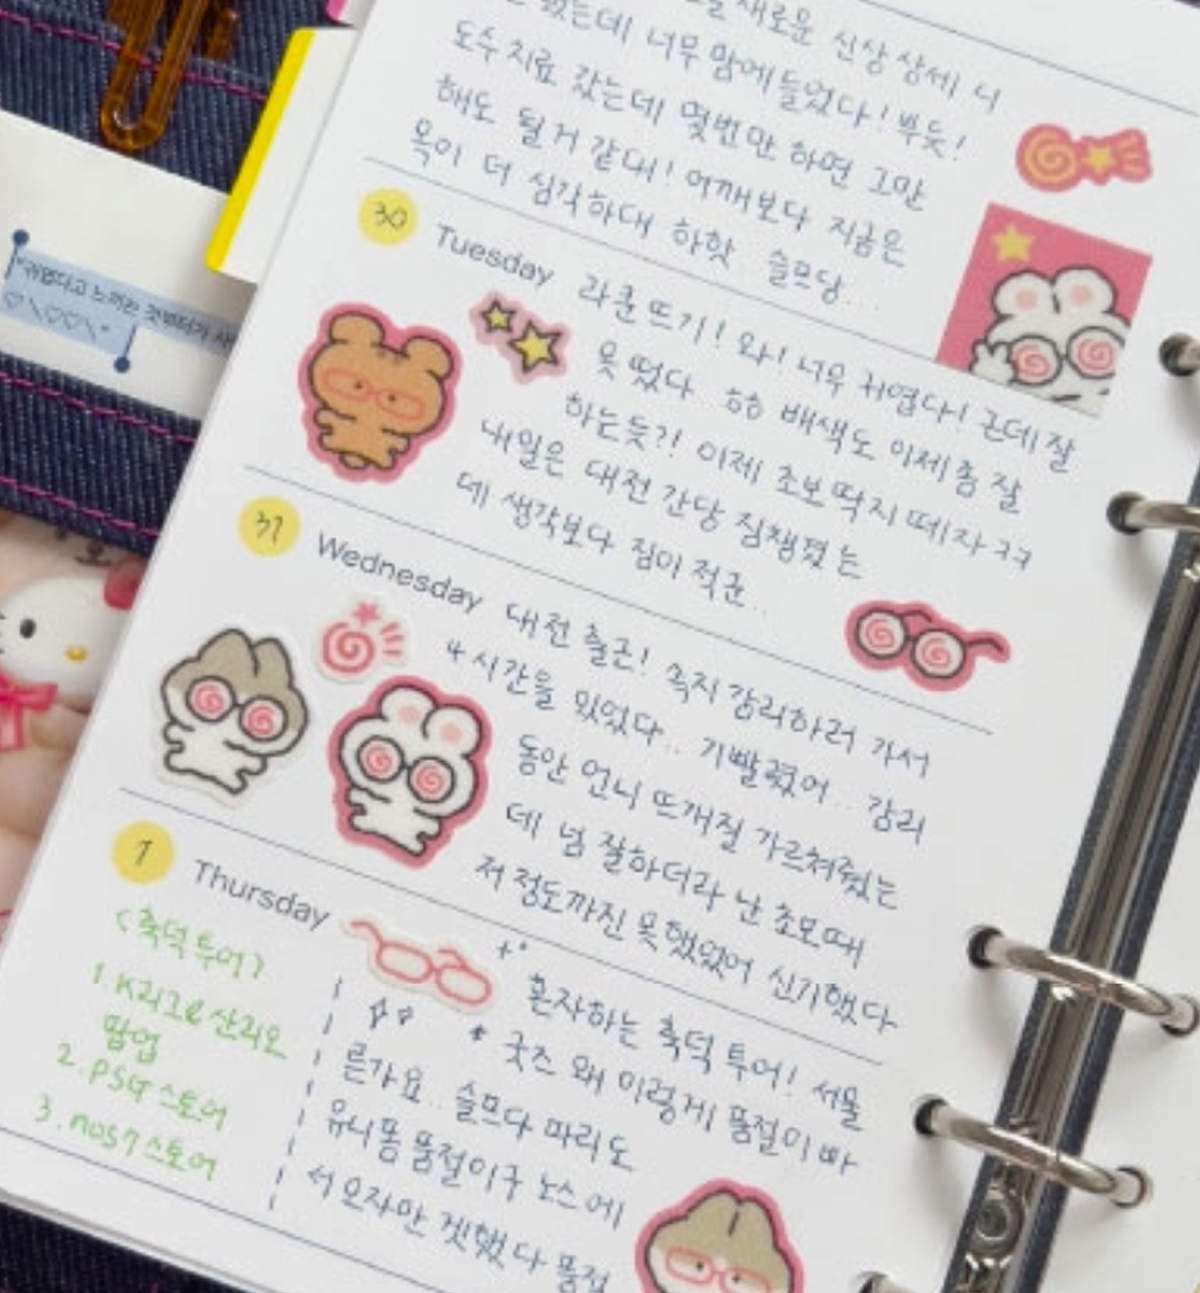 새로운 신상 상세 너
했는데 너무 맘에 들었다! 뿌듯!
도수치료 갔는데 몇번만 하면 그만
해도 될거 같대! 어깨보다 지금은
목이 더 심각하대 하핫 슬프당...
30 Tuesday
라쿤 뜨기! 와! 너무 귀엽다! 근데 잘
못 떴다.. ㅎㅎ 배색도 이제 좀 잘
하는듯?! 이제 초보딱지 떼자 ㅋㅋ
내일은 대전 간당 짐챙겼는
데 생각보다 짐이 적군..
31 Wednesday
대전 출근! 족지 감리하러 가서
4시간을 있었다.. 기빨렸어.. 감리
동안 언니 뜨개질 가르쳐줬는
데 넘 잘하더라 난 초보때
저 정도까진 못했었어 신기했다
1 Thursday
<축덕투어>
1. K리그& 산리오
팝업
2. PSG 스토어
3. nos7 스토어
혼자하는 축덕 투어! 서울
굿즈 왜 이렇게 품절이 빠
른가요.. 슬프다 파리도
유니폼 품절이구 노스에
서 오자만 겟했다 품절
"귀엽다고 느끼는 것부터가 사
♡\♡♡\"